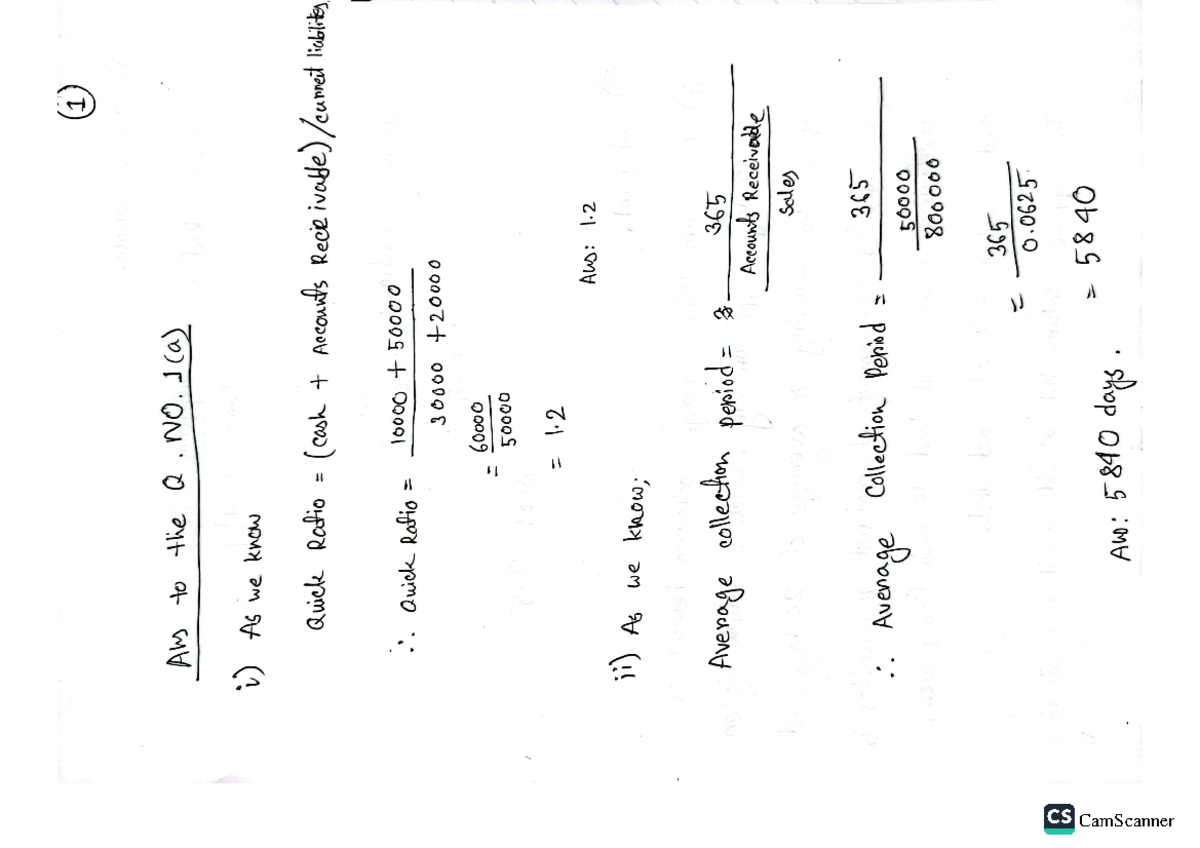 (1)
Ans to the Q. NO. 1(a)
i) As we know
Quick Ratio = (cash + Accounts Receivable)/current liabilities
∴ Quick Ratio = 10000 + 50000 / 30000 + 20000
= 60000 / 50000
= 1.2
Ans: 1.2
ii) As we know;
Average collection period = 365 / (Accounts Receivable / Sales)
∴ Average Collection Period = 365 / (50000 / 800000)
= 365 / 0.0625
= 5840
Ans: 5840 days.
CS CamScanner